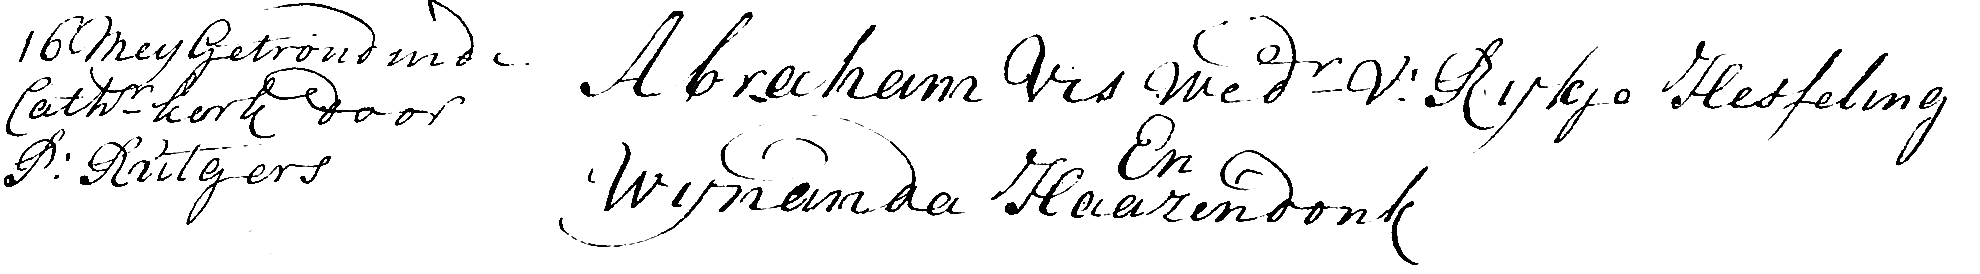 16 Mey Getrond in de
Cathr kerk door
P: Rutgers
Abraham Vis Wedr V: Rijkje Hesseling
En
Wijnanda Haazendonk